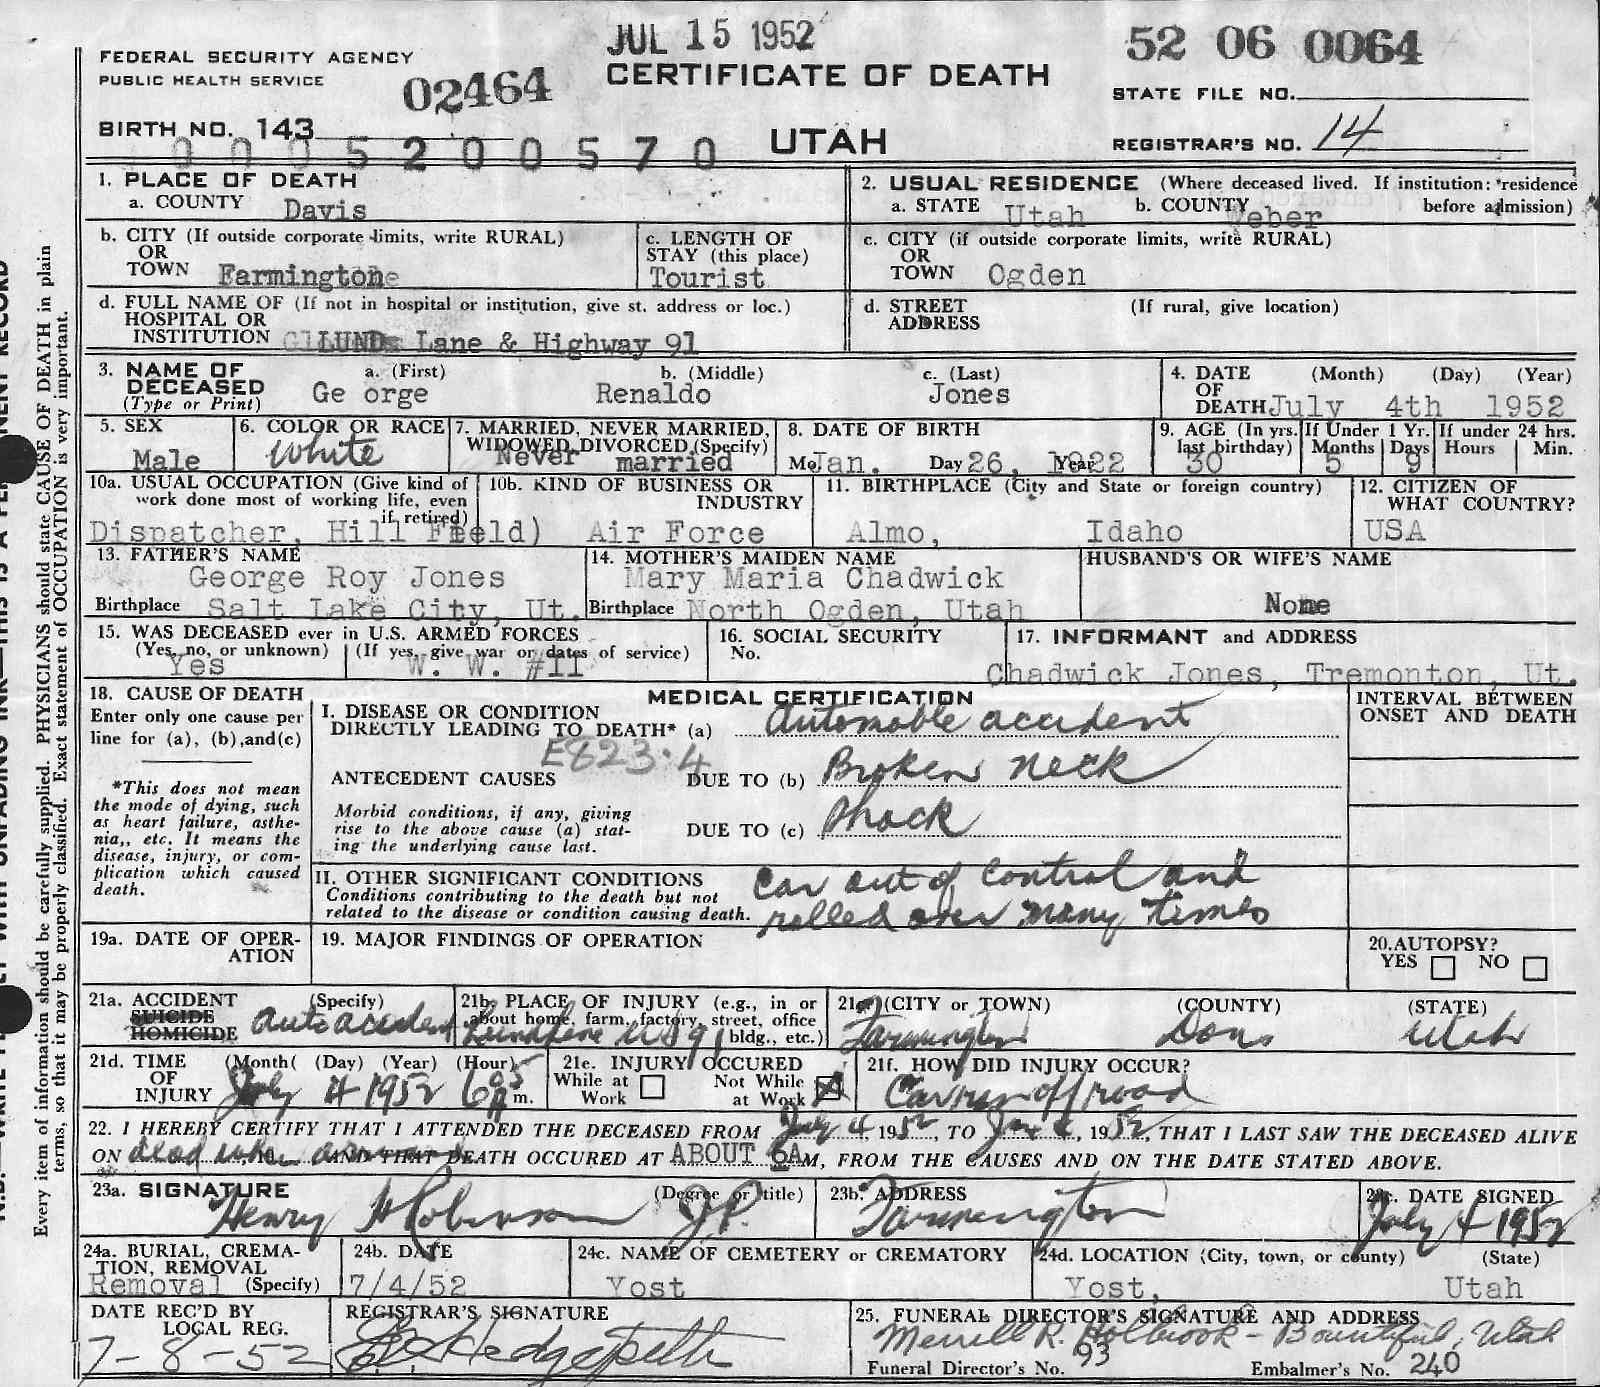 JUL 15 1952
52 06 0064
FEDERAL SECURITY AGENCY
PUBLIC HEALTH SERVICE
02464
CERTIFICATE OF DEATH
STATE FILE NO.
BIRTH NO. 143
0005200570
UTAH
REGISTRAR'S NO. 14
1. PLACE OF DEATH
a. COUNTY Davis
2. USUAL RESIDENCE (Where deceased lived. If institution: residence before admission)
a. STATE Utah b. COUNTY Weber
b. CITY (If outside corporate limits, write RURAL)
OR
TOWN Farmington
c. LENGTH OF
STAY (this place)
Tourist
c. CITY (if outside corporate limits, write RURAL)
OR
TOWN Ogden
d. FULL NAME OF (If not in hospital or institution, give st. address or loc.)
HOSPITAL OR
INSTITUTION LUND Lane & Highway 91
d. STREET (If rural, give location)
ADDRESS
3. NAME OF
DECEASED
(Type or Print)
a. (First) b. (Middle) c. (Last)
Ge orge Renaldo Jones
4. DATE (Month) (Day) (Year)
OF
DEATH July 4th 1952
5. SEX
Male
6. COLOR OR RACE
White
7. MARRIED, NEVER MARRIED,
WIDOWED, DIVORCED (Specify)
Never married
8. DATE OF BIRTH
Mo Jan. Day 26, Year 1922
9. AGE (In yrs. last birthday) 30
If Under 1 Yr.
Months 5 Days 9
If under 24 hrs.
Hours Min.
10a. USUAL OCCUPATION (Give kind of
work done most of working life, even
if retired)
Dispatcher, Hill Field)
10b. KIND OF BUSINESS OR
INDUSTRY
Air Force
11. BIRTHPLACE (City and State or foreign country)
Almo, Idaho
12. CITIZEN OF
WHAT COUNTRY?
USA
13. FATHER'S NAME
George Roy Jones
Birthplace Salt Lake City, Ut.
14. MOTHER'S MAIDEN NAME
Mary Maria Chadwick
Birthplace North Ogden, Utah
HUSBAND'S OR WIFE'S NAME
None
15. WAS DECEASED ever in U.S. ARMED FORCES
(Yes, no, or unknown) (If yes, give war or dates of service)
Yes W. W. #11
16. SOCIAL SECURITY
No.
17. INFORMANT and ADDRESS
Chadwick Jones, Tremonton, Ut.
18. CAUSE OF DEATH
Enter only one cause per
line for (a), (b), and (c)
*This does not mean
the mode of dying, such
as heart failure, asthe-
nia,, etc. It means the
disease, injury, or com-
plication which caused
death.
MEDICAL CERTIFICATION
I. DISEASE OR CONDITION
DIRECTLY LEADING TO DEATH* (a) Automoble accident
E823.4
ANTECEDENT CAUSES DUE TO (b) Broken neck
Morbid conditions, if any, giving
rise to the above cause (a) stat-
ing the underlying cause last.
DUE TO (c) Shock
II. OTHER SIGNIFICANT CONDITIONS
Conditions contributing to the death but not
related to the disease or condition causing death.
Car out of control and
rolled over many times
INTERVAL BETWEEN
ONSET AND DEATH
19a. DATE OF OPER-
ATION
19. MAJOR FINDINGS OF OPERATION
20. AUTOPSY?
YES NO
21a. ACCIDENT (Specify)
SUICIDE
HOMICIDE
Auto accident
21b. PLACE OF INJURY (e.g., in or
about home, farm, factory, street, office
bldg., etc.)
21c. (CITY or TOWN) (COUNTY) (STATE)
Farmington Utah
21d. TIME (Month) (Day) (Year) (Hour)
OF
INJURY July 4 1952 6 05 A m.
21e. INJURY OCCURED
While at Work Not While at Work
21f. HOW DID INJURY OCCUR?
Car run off road
22. I HEREBY CERTIFY THAT I ATTENDED THE DECEASED FROM July 4, 1952, TO , 1952, THAT I LAST SAW THE DECEASED ALIVE
ON dead when AND THAT DEATH OCCURED AT ABOUT 6AM, FROM THE CAUSES AND ON THE DATE STATED ABOVE.
23a. SIGNATURE (Degree or title)
Henry H Robinson J.P.
23b. ADDRESS
Farmington
23c. DATE SIGNED
July 4 1952
24a. BURIAL, CREMA-
TION, REMOVAL
Removal (Specify)
24b. DATE
7/4/52
24c. NAME OF CEMETERY or CREMATORY
Yost
24d. LOCATION (City, town, or county) (State)
Yost, Utah
DATE REC'D BY
LOCAL REG.
7-8-52
REGISTRAR'S SIGNATURE
25. FUNERAL DIRECTOR'S SIGNATURE AND ADDRESS
Merrill R. Holbrook - Bountiful, Utah
Funeral Director's No. 93 Embalmer's No. 240
Every item of information should be carefully supplied. PHYSICIANS should state CAUSE OF DEATH in plain
terms, so that it may be properly classified. Exact statement of OCCUPATION is very important.